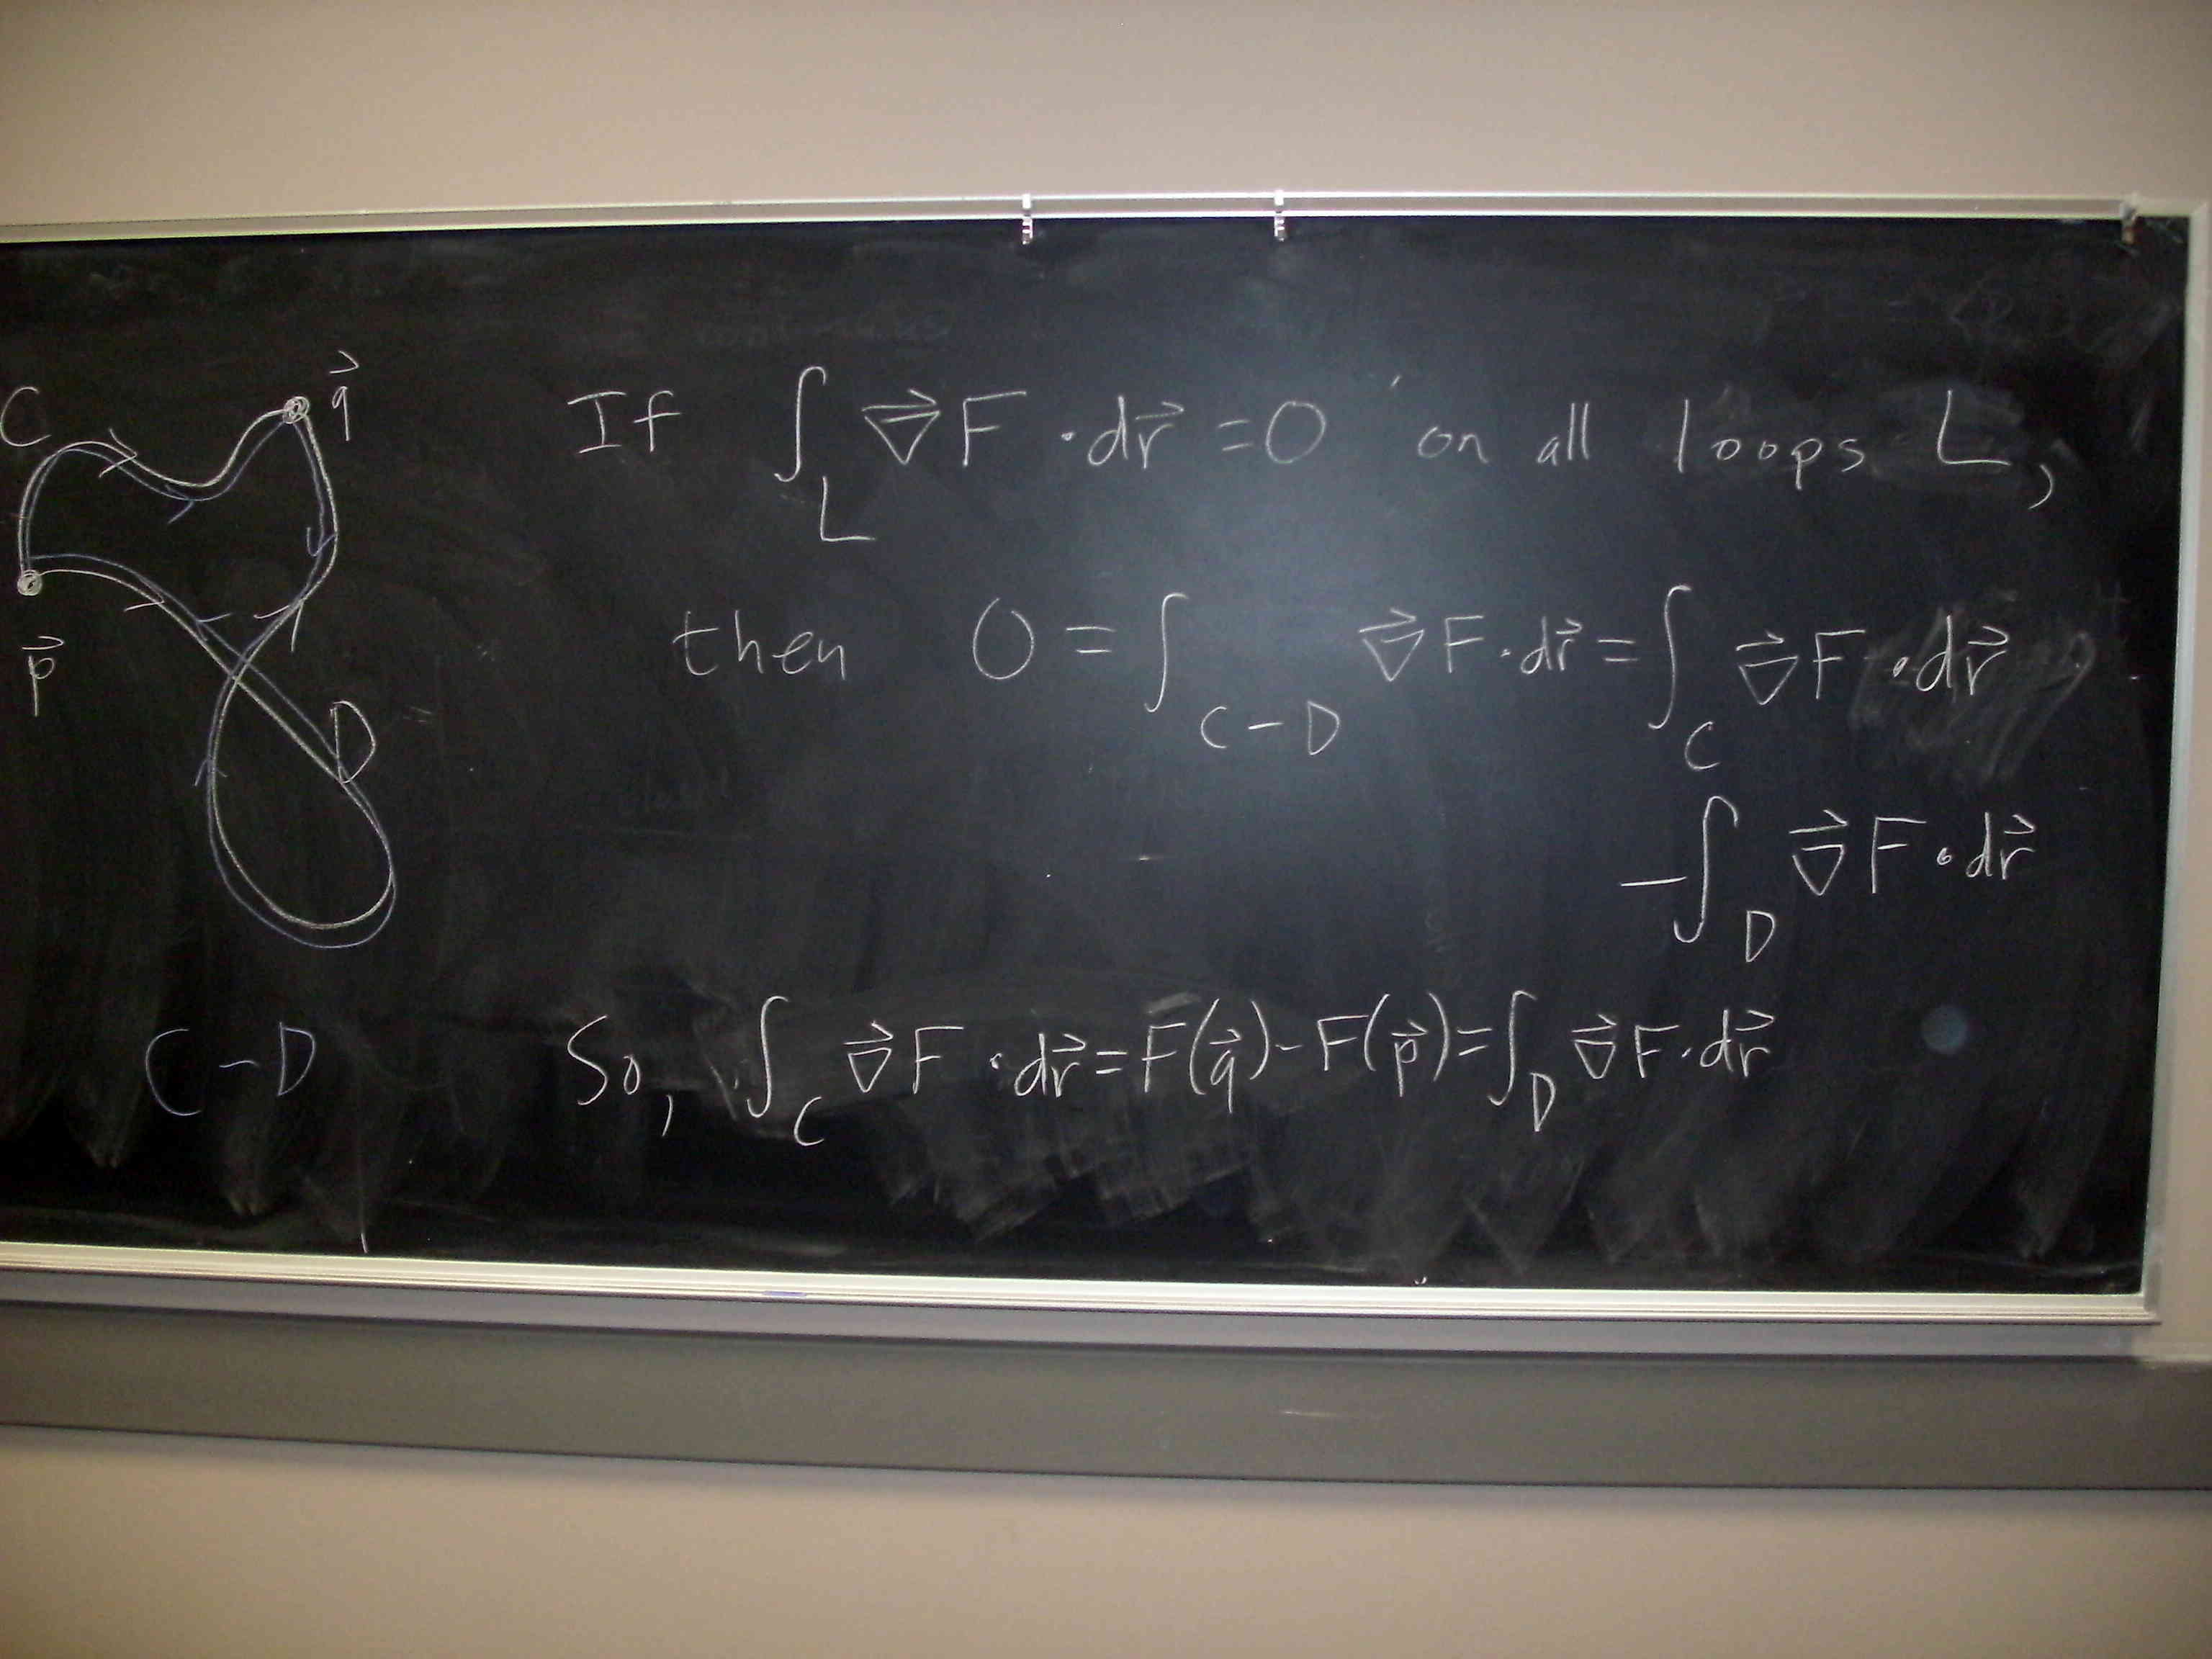 C
q⃗
p⃗
D
C - D
If ∫_L ∇⃗F · dr⃗ = 0 on all loops L,
then 0 = ∫_{C-D} ∇⃗F · dr⃗ = ∫_C ∇⃗F · dr⃗
- ∫_D ∇⃗F · dr⃗
So, ∫_C ∇⃗F · dr⃗ = F(q⃗) - F(p⃗) = ∫_D ∇⃗F · dr⃗